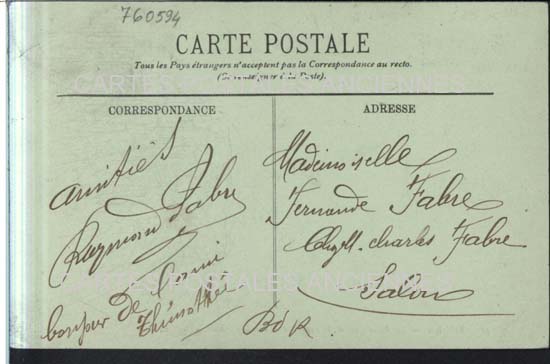 760594
CARTE POSTALE
Tous les Pays étrangers n'acceptent pas la Correspondance au recto.
(Se renseigner à la Poste).
CARTES POSTALES ANCIENNES
CORRESPONDANCE
amitiés
Raymond Fabre
bonjour De
ADRESSE
Mademoiselle
Fernande Fabre
Chez M. charles Fabre
Salon
B d R
CARTES POSTALES ANCIENNES